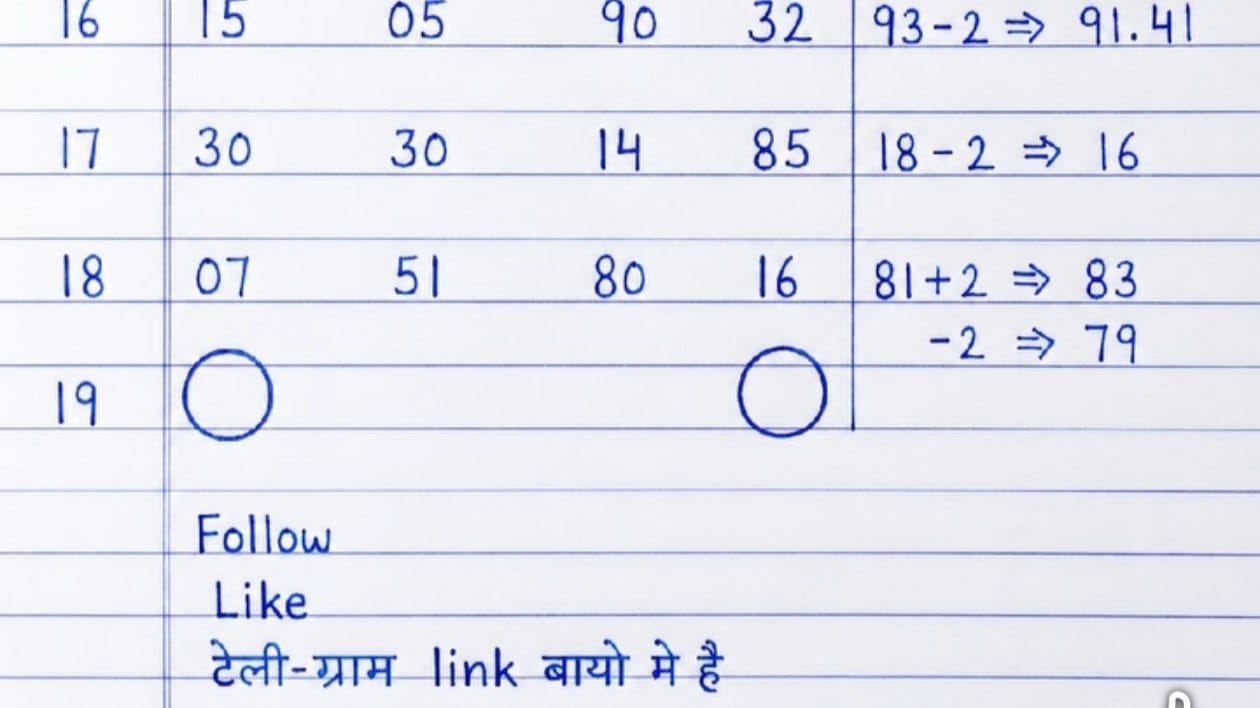 16 15 05 90 32 93-2 ⇒ 91.41
17 30 30 14 85 18-2 ⇒ 16
18 07 51 80 16 81+2 ⇒ 83
-2 ⇒ 79
19
Follow
Like
टेली-ग्राम link बायो मे है